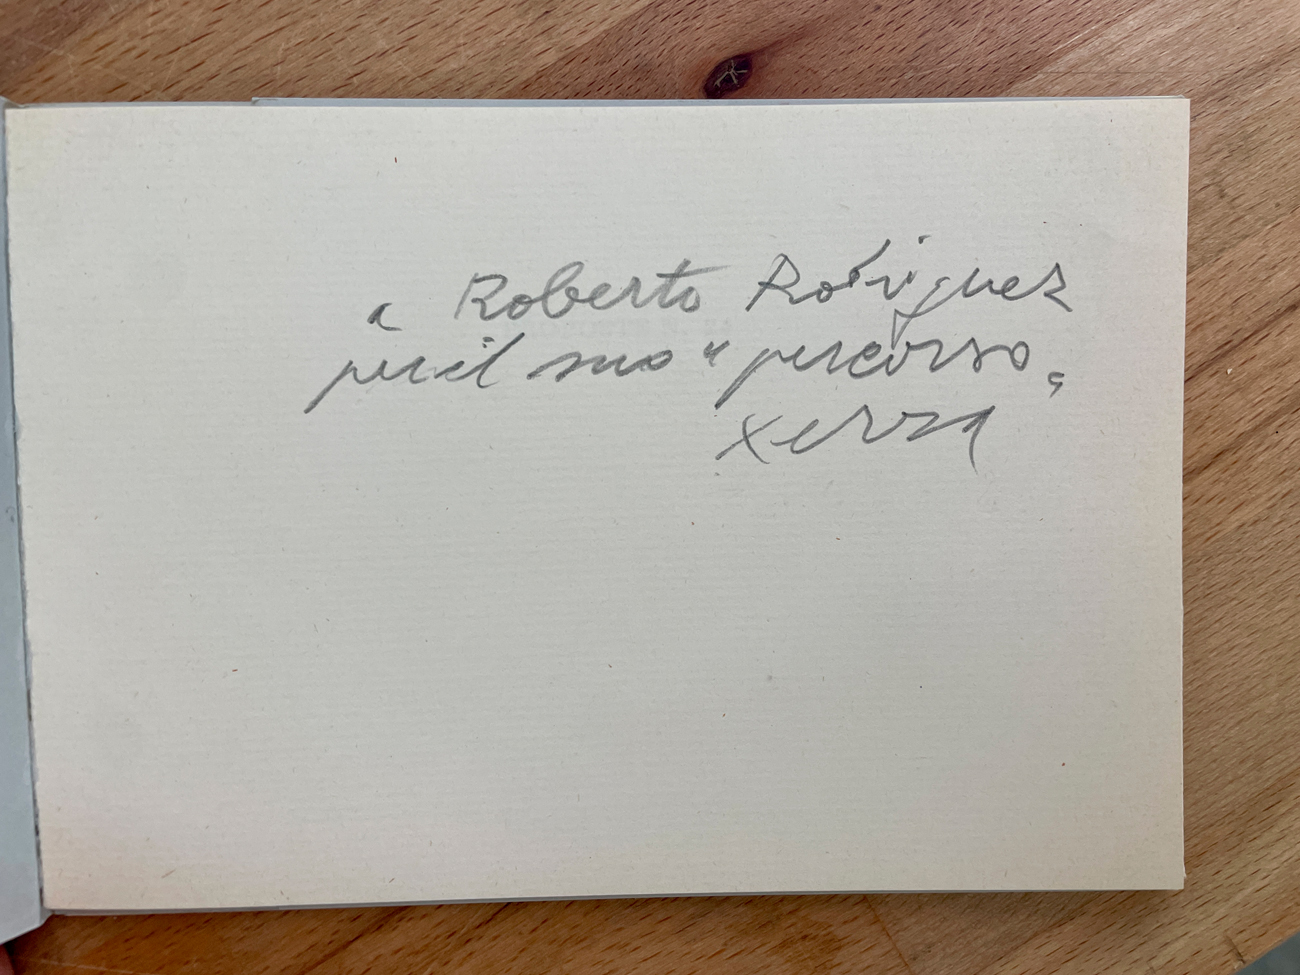 a Roberto Rodriguez
per il suo "percorso„
xerra